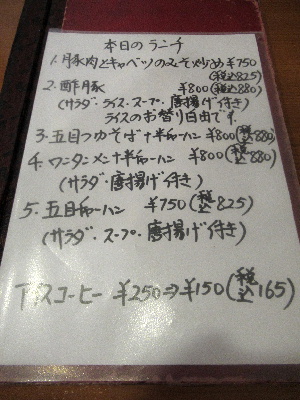 本日のランチ
1. 豚肉とキャベツのみそ炒め ¥750
(税込825)
2. 酢豚 ¥800(税込880)
(サラダ・ライス・スープ・唐揚げ付き)
ライスのお替り自由です
3. 五目つゆそば+半チャーハン ¥800(税込880)
4. ワンタンメン+半チャーハン ¥800(税込880)
(サラダ・唐揚げ付き)
5. 五目チャーハン ¥750(税込825)
(サラダ・スープ・唐揚げ付き)
アイスコーヒー ¥250⇒¥150(税込165)